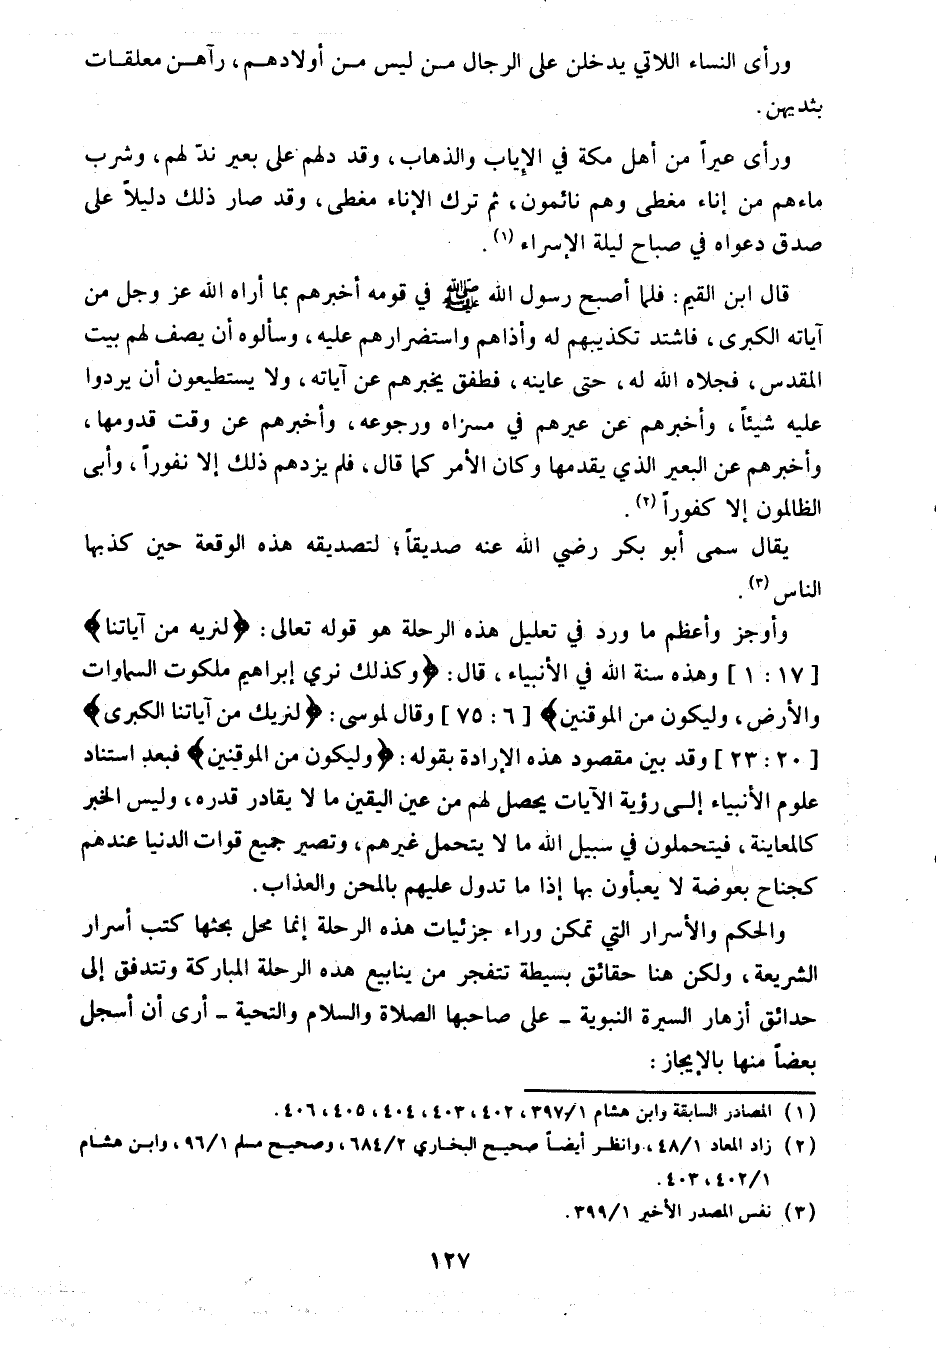 ورأى النساء اللاتي يدخلن على الرجال مـن ليس مـن أولادهـم، رآهـن معلقـات
بثديهن.
ورأى عيراً من أهل مكة في الإياب والذهاب، وقد دلهم على بعير ندّ لهم، وشرب
ماءهم من إناء مغطى وهم نائمون، ثم ترك الإناء مغطى، وقد صار ذلك دليلاً على
صدق دعواه في صباح ليلة الإسراء (١).
قال ابن القيم: فلما أصبح رسول الله ﷺ في قومه أخبرهم بما أراه الله عز وجل من
آياته الكبرى، فاشتد تكذيبهم له وأذاهم واستضرارهم عليه، وسألوه أن يصف لهم بيت
المقدس، فجلاه الله له، حتى عاينه، فطفق يخبرهم عن آياته، ولا يستطيعون أن يردوا
عليه شيئاً، وأخبرهم عن عيرهم في مسراه ورجوعه، وأخبرهم عن وقت قدومها،
وأخبرهم عن البعير الذي يقدمها وكان الأمر كما قال، فلم يزدهم ذلك إلا نفوراً، وأبى
الظالمون إلا كفوراً (٢).
يقال سمى أبو بكر رضي الله عنه صديقاً؛ لتصديقه هذه الوقعة حين كذبها
الناس (٣).
وأوجز وأعظم ما ورد في تعليل هذه الرحلة هو قوله تعالى: ﴿لنريه من آياتنا﴾
[١٧: ١] وهذه سنة الله في الأنبياء، قال: ﴿وكذلك نري إبراهيم ملكوت السماوات
والأرض، وليكون من الموقنين﴾ [٦: ٧٥] وقال لموسى: ﴿لنريك من آياتنا الكبرى﴾
[٢٠: ٢٣] وقد بين مقصود هذه الإرادة بقوله: ﴿وليكون من الموقنين﴾ فبعد استناد
علوم الأنبياء إلـى رؤية الآيات يحصل لهم من عين اليقين ما لا يقادر قدره، وليس الخبر
كالمعاينة، فيتحملون في سبيل الله ما لا يتحمل غيرهم، وتصير جميع قوات الدنيا عندهم
كجناح بعوضة لا يعبأون بها إذا ما تدول عليهم بالمحن والعذاب.
والحكم والأسرار التي تمكن وراء جزئيات هذه الرحلة إنما محل بحثها كتب أسرار
الشريعة، ولكن هنا حقائق بسيطة تتفجر من ينابيع هذه الرحلة المباركة وتتدفق إلى
حدائق أزهار السيرة النبوية ـ على صاحبها الصلاة والسلام والتحية ـ أرى أن أسجل
بعضاً منها بالإيجاز:
(١) المصادر السابقة وابن هشام ٣٩٧/١، ٤٠٢، ٤٠٣، ٤٠٤، ٤٠٥، ٤٠٦.
(٢) زاد المعاد ٤٨/١، وانظـر أيضـاً صحيـح البخـاري ٦٨٤/٢، وصحيـح مسلم ٩٦/١، وابـن هشـام
٤٠٢/١، ٤٠٣.
(٣) نفس المصدر الأخير ٣٩٩/١.
١٢٧